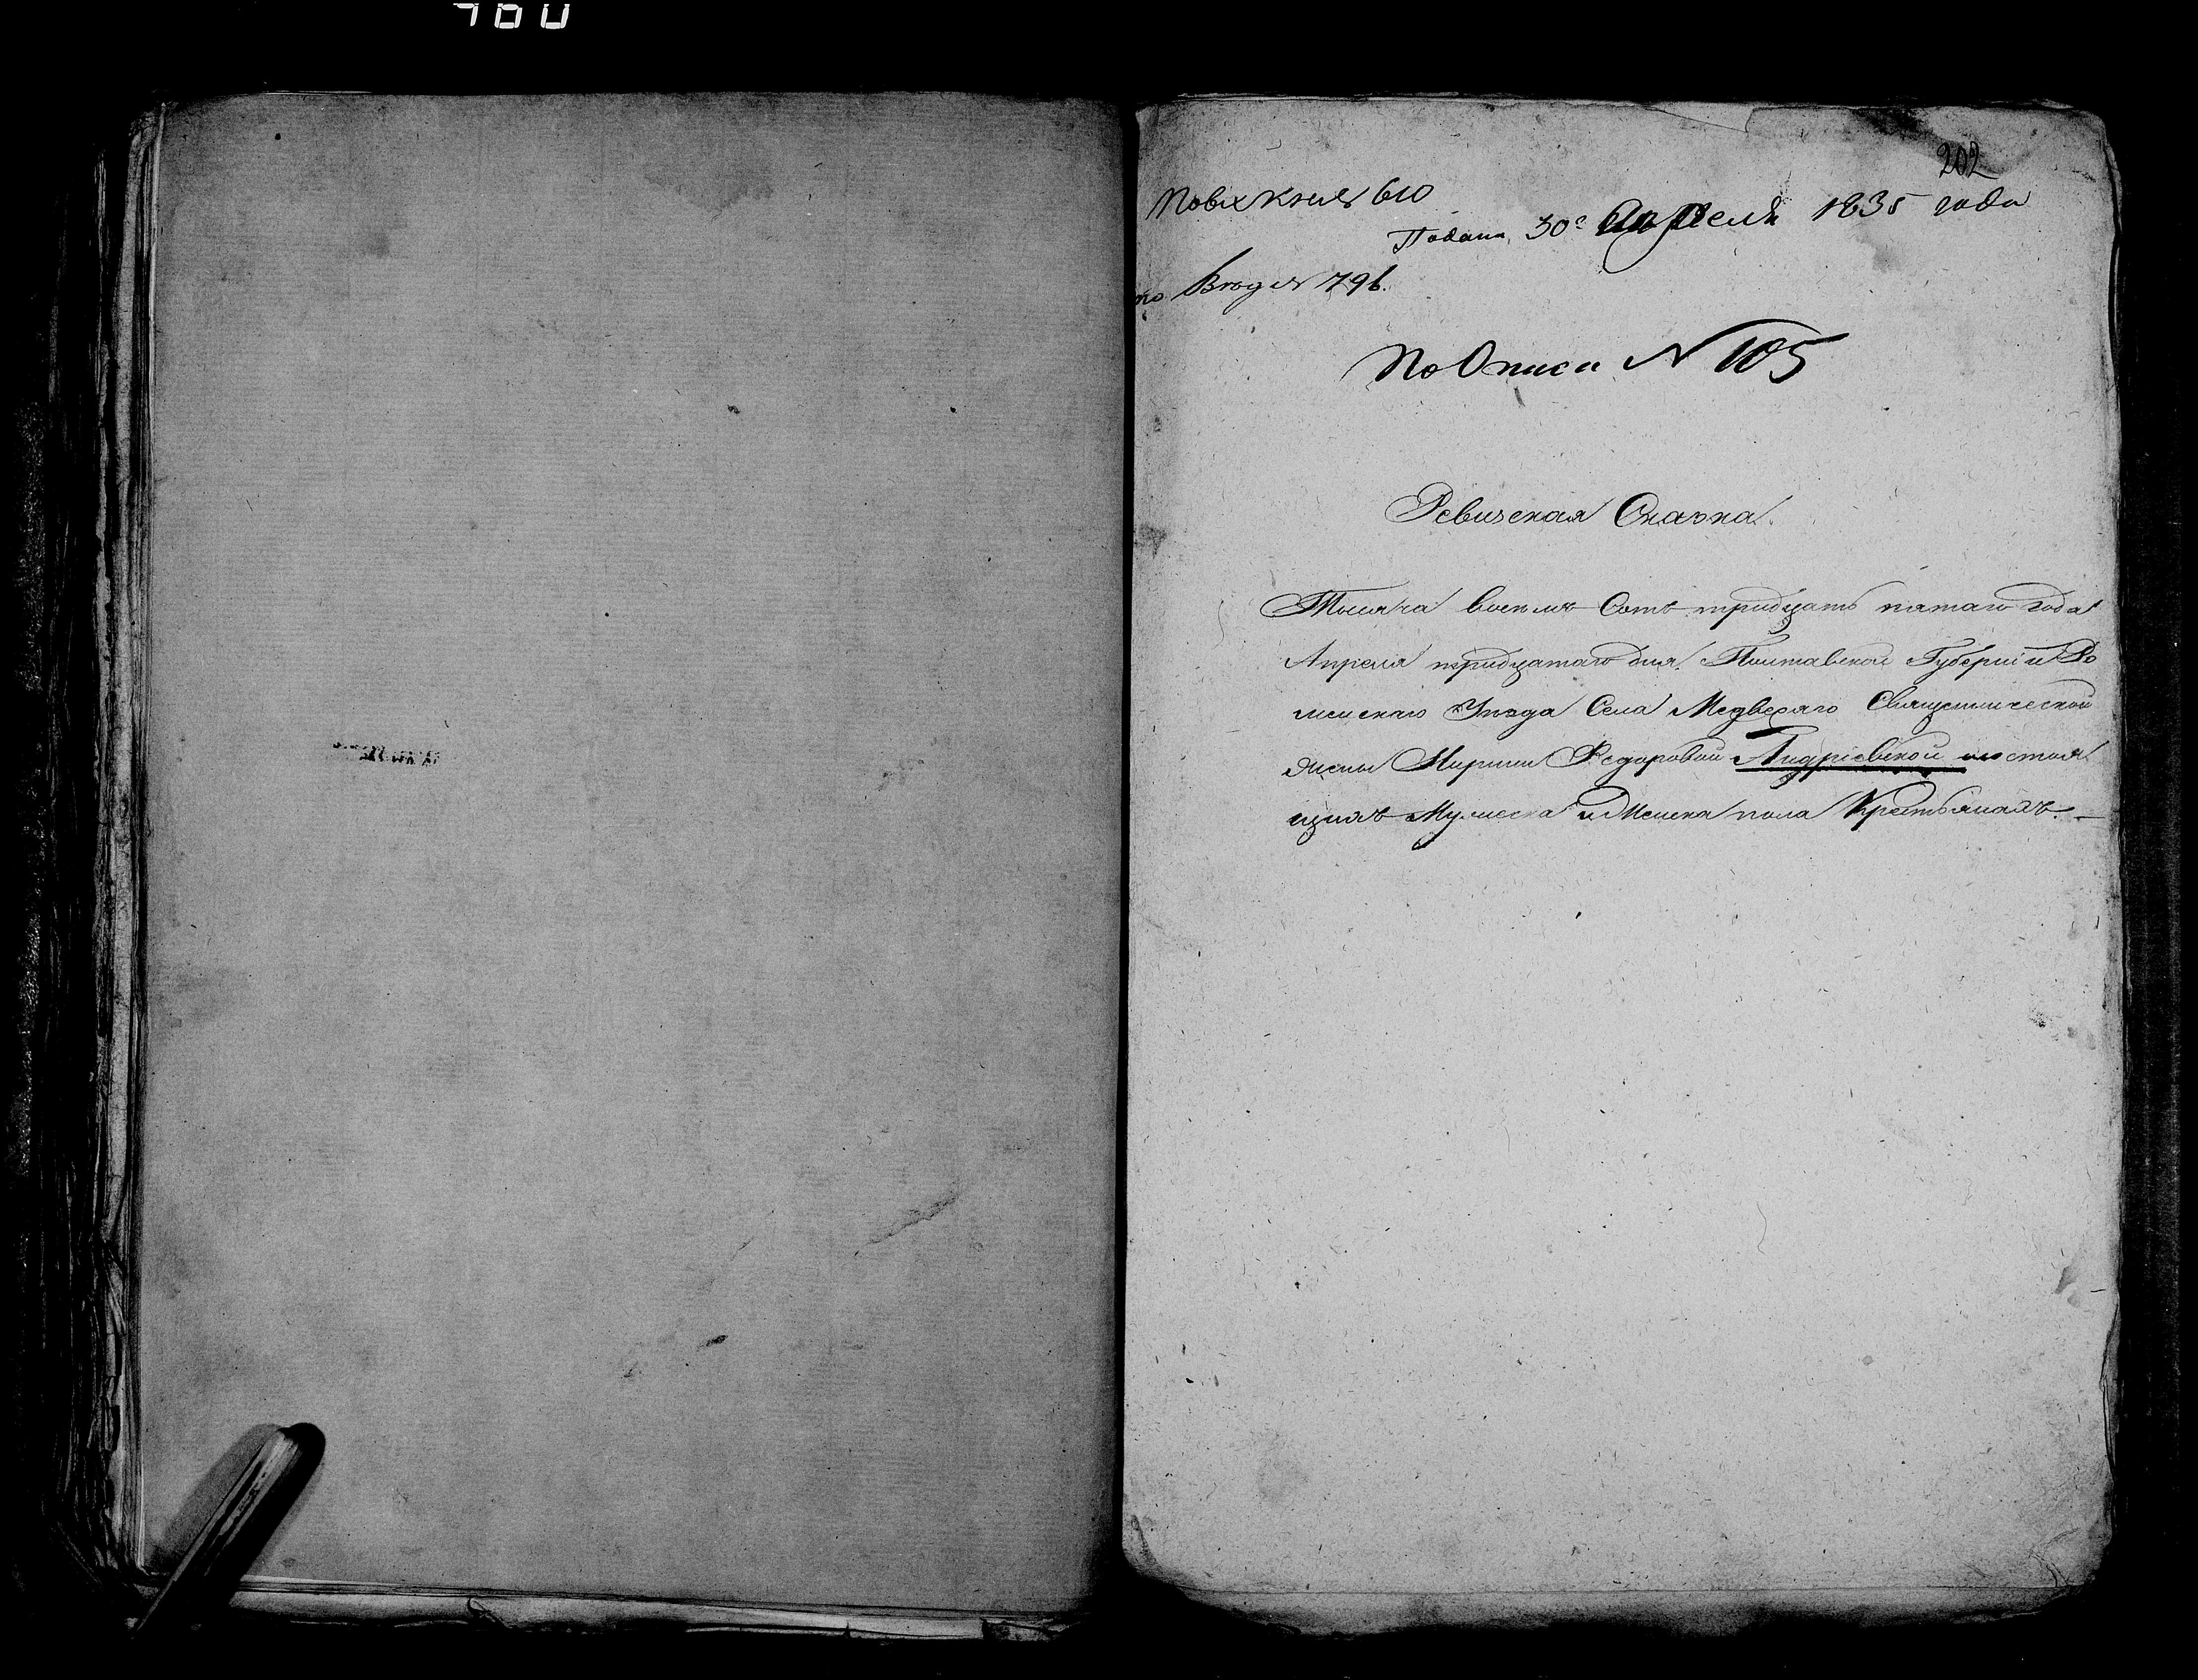 460
202
По вх книг № 610
Подана 30го Апреля 1835 года
по Вход № 796.
По Описи № 105
Ревизская Сказка.
Тысяча восемь Сотъ тридцать пятаго года
Апреля тридцатаго дня. Полтавской Губернии Ро
менскаго Уезда Села Медвежаго Священнической
жены Марины Федоровой Андріевской о состоя
щихъ Мужеска и Женска пола Крестьянахъ.